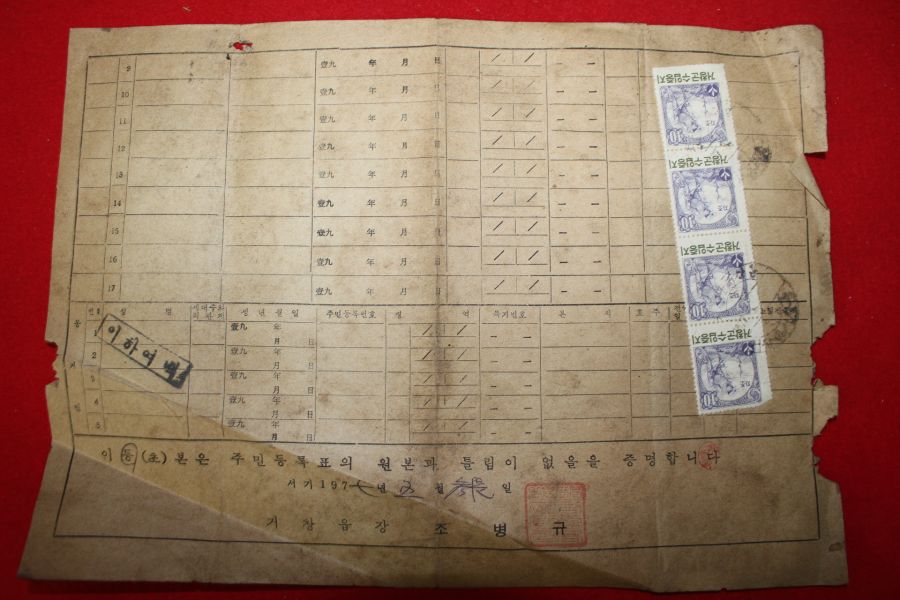 9 壹九 年 月 日 / / — —
10 壹九 年 月 日 / / — —
11 壹九 年 月 日 / / — —
12 壹九 年 月 日 / / — —
13 壹九 年 月 日 / / — —
14 壹九 年 月 日 / / — —
15 壹九 年 月 日 / / — —
16 壹九 年 月 日 / / — —
17 壹九 年 月 日 / / — —
성 별 성 년 월 일 주민등록번호 병 역 특기번호 본 호주
1 壹九 年 月 日 / / — —
2 壹九 年 月 日 / / — —
3 壹九 年 月 日 / / — —
4 壹九 年 月 日 / / — —
5 壹九 年 月 日 / / — —
이하여백
이 등 (초) 본은 주민등록표의 원본과 틀림이 없음을 증명합니다
서기 197 년 五 월 일
거 창 읍 장 조 병 규
거창군수입증지
10
거창군수입증지
10
거창군수입증지
10
거창군수입증지
10